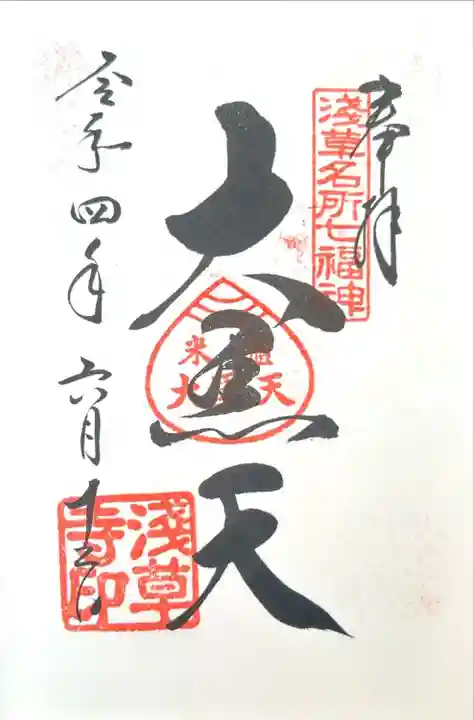 奉拝
淺草名所七福神
大黒天
米
大 天
令和四年六月十三日
淺草
寺印